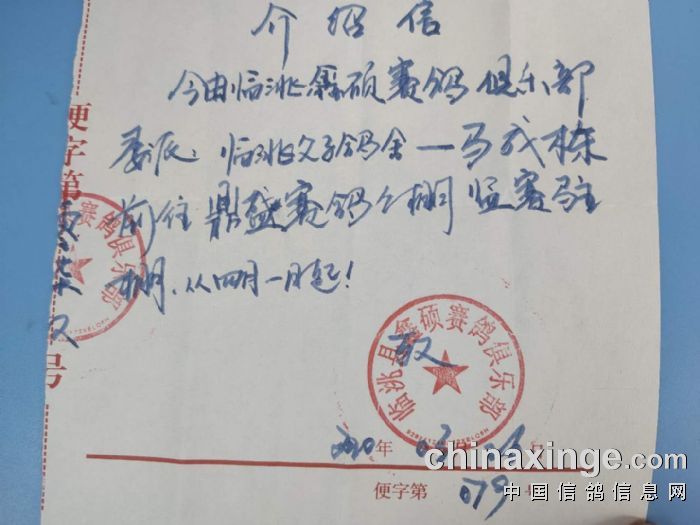 介绍信
今由临洮鑫硕赛鸽俱乐部
委派：临洮父子鸽舍—马成栋
前往鼎盛赛鸽公棚监赛驻
棚，从四月一日起！
便字第
号
赛鸽俱乐部
临洮县鑫硕赛鸽俱乐部
2020年
便字第 079 号
chinaxinge.com
中国信鸽信息网